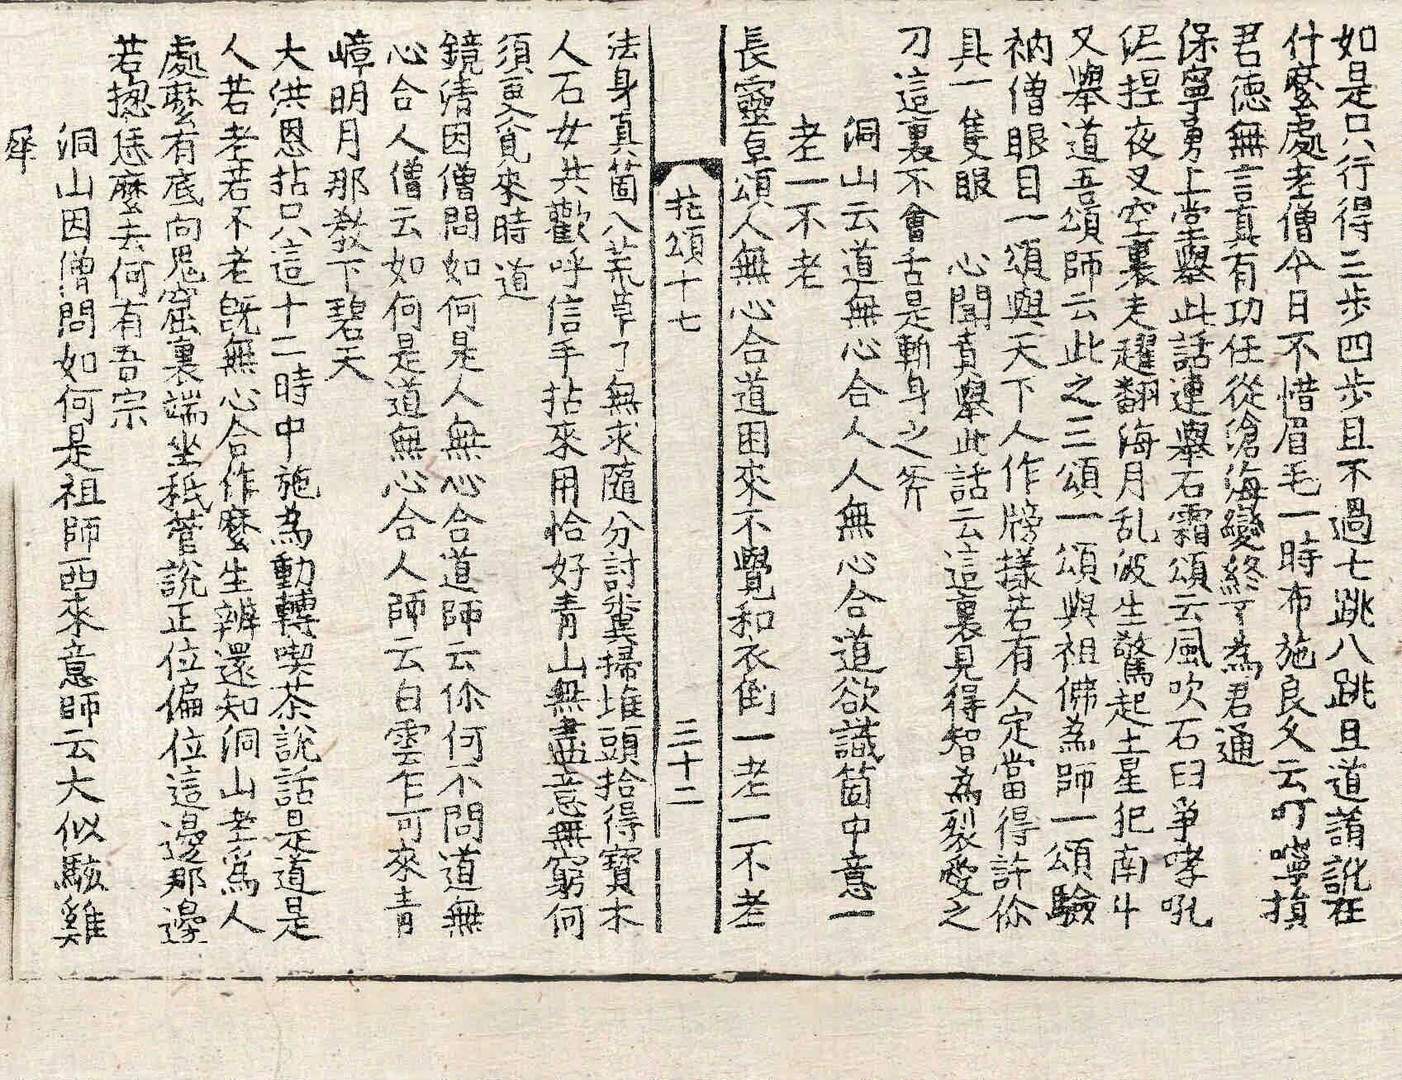 如是只行得三步四步且不過七跳八跳且道誵訛在
什麼處老僧今日不惜眉毛一時布施良久云叮嚀損
君德無言眞有功任從滄海變終不爲君通
保寧勇上堂擧此話連擧石霜頌云風吹石臼爭哮吼
泥捏夜叉空裏走趯翻海月乱波生驚起土星犯南斗
又擧道吾頌師云此之三頌一頌與祖佛爲師一頌驗
衲僧眼目一頌與天下人作牓樣若有人定當得許伱
具一隻眼　心聞賁擧此話云這裏見得智爲裂愛之
刀這裏不會舌是斬身之斧
洞山云道無心合人人無心合道欲識箇中意一
老一不老
長靈卓頌人無心合道困來不覺和衣倒一老一不老
拈頌十七　三十二
法身眞箇入荒草了無求隨分討糞掃堆頭拾得寶木
人石女共歡呼信手拈來用恰好靑山無盡意無窮何
須更覓來時道
鏡淸因僧問如何是人無心合道師云伱何不問道無
心合人僧云如何是道無心合人師云白雲乍可來靑
嶂明月那敎下碧天
大洪恩拈只這十二時中施爲動轉喫茶說話是道是
人若老若不老旣無心合作麼生辨還知洞山老爲人
處麼有底向鬼窟裏端坐秖管說正位偏位這邊那邊
若揔恁麼去何有吾宗
洞山因僧問如何是祖師西來意師云大似駭雞
犀